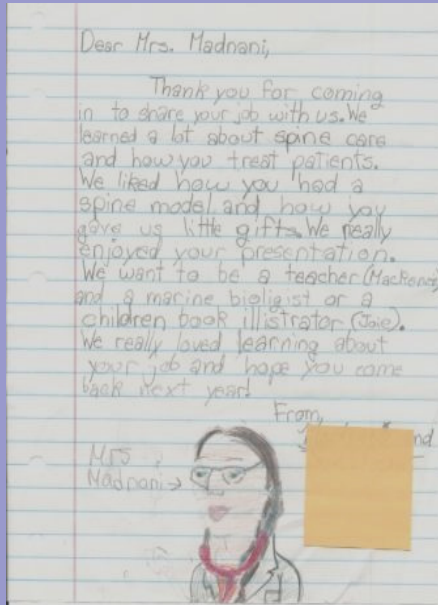 Dear Mrs. Madnani,
Thank you for coming
in to share your job with us. We
learned a lot about spine care
and how you treat patients.
We liked how you had a
spine model and how you
gave us little gifts. We really
enjoyed your presentation.
We want to be a teacher (Mackenzie)
and a marine bioligist or a
children book illistrator (Joie).
We really loved learning about
your job and hope you come
back next year!
From,
and
Mrs.
Madnani→